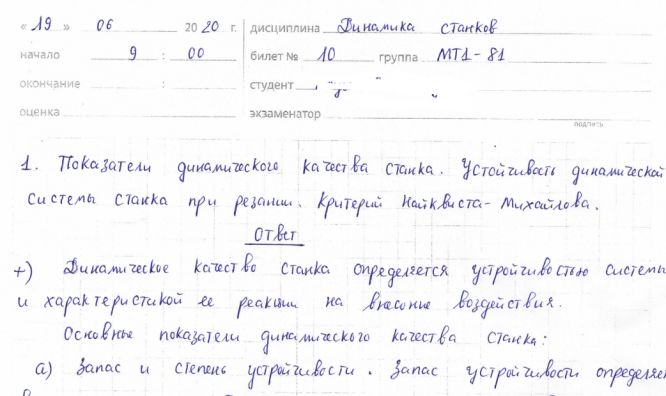 « 19 » 06 20 20 г. дисциплина Динамика станков
начало 9 : 00 билет № 10 группа МТ1-81
окончание : студент
оценка экзаменатор
подпись
1. Показатели динамического качества станка. Устойчивость динамической
системы станка при резании. Критерий Найквиста-Михайлова.
Ответ
+) Динамическое качество станка определяется устройчивостью системы
и характеристикой ее реакции на внесоние воздействия.
Основные показатели динамического качества станка:
а) Запас и степень устройчивости. Запас устройчивости определяе